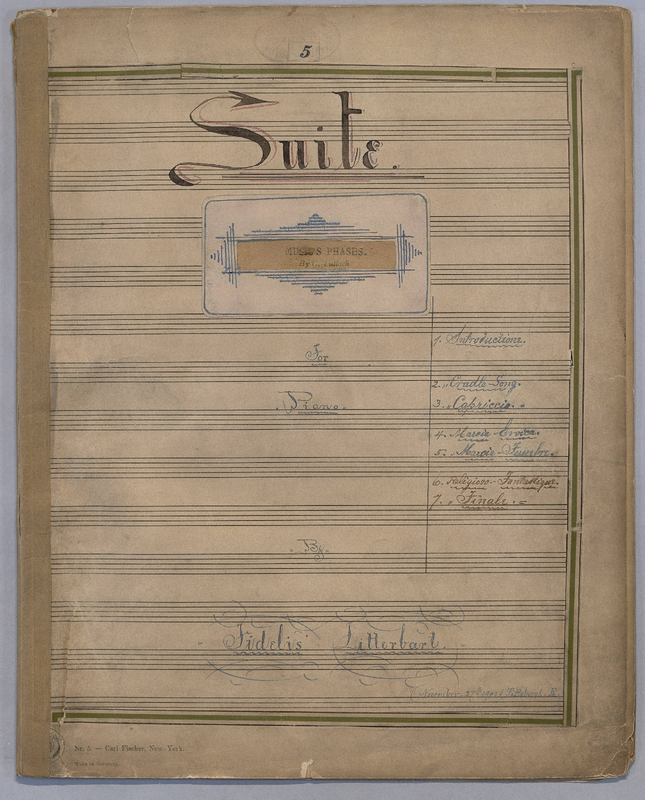 5
Suite.
MUSIC'S PHASES.
For
Piano
1. Introduction.
2. Cradle Song.
3. Capriccio.
4. Marcia Eroica.
5. Marcia Funebre.
6. Religioso-Fantastique.
7. Finale.
By
Fidelis Zitterbart.
Nr. 5. — Carl Fischer, New-York.